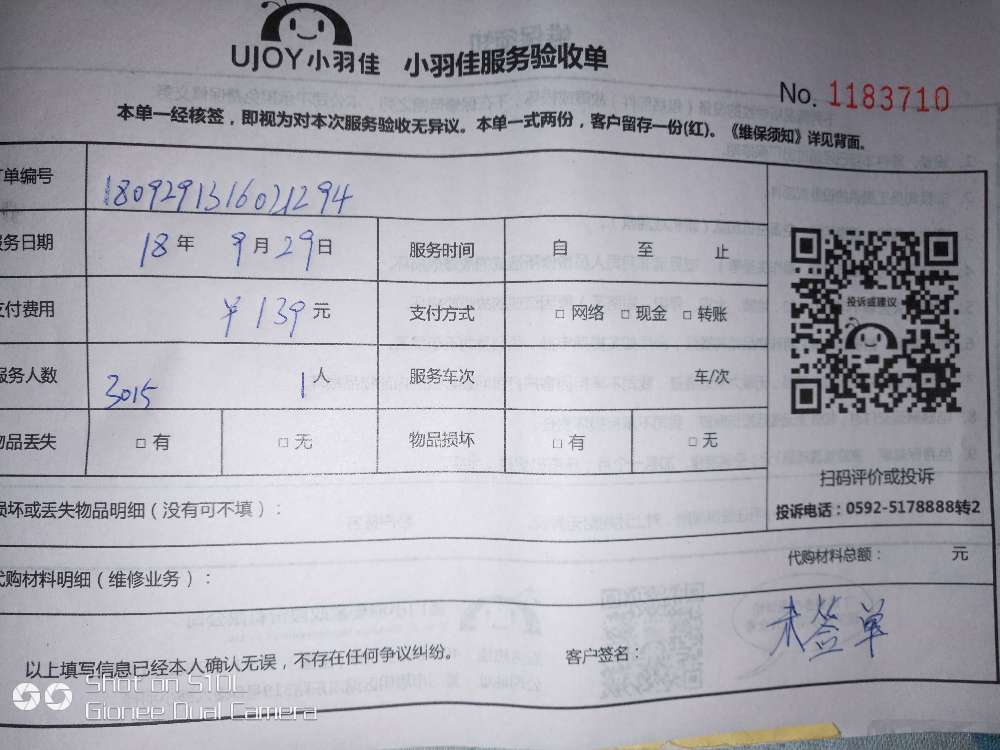 UJOY小羽佳 小羽佳服务验收单
No. 1183710
本单一经核签，即视为对本次服务验收无异议。本单一式两份，客户留存一份(红)。《维保须知》详见背面。
单编号 1809291316021294
务日期 18年 9月29日 服务时间 自 至 止
付费用 ￥139元 支付方式 □ 网络 □ 现金 □ 转账
服务人数 3015 1人 服务车次 车/次
物品丢失 □ 有 □ 无 物品损坏 □ 有 □ 无
投诉或建议
扫码评价或投诉
投诉电话：0592-5178888转2
损坏或丢失物品明细（没有可不填）：
代购材料明细（维修业务）：
代购材料总额： 元
以上填写信息已经本人确认无误，不存在任何争议纠纷。
客户签名： 未签单
Shot on S10L
Gionee Dual Camera